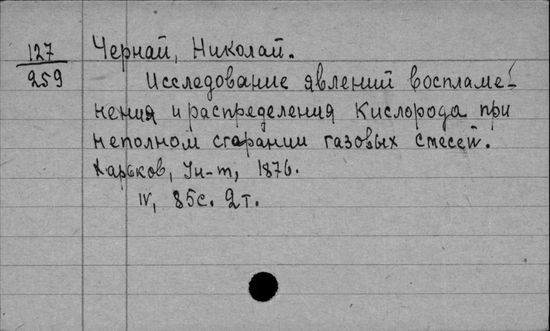 127 Чернай, Николай.
259 Исследование явлений воспламе-
нения и распределения кислорода при
неполном сгарании газовых смесей.
Харьков, Ун-т, 1876.
IV, 85с. 2т.